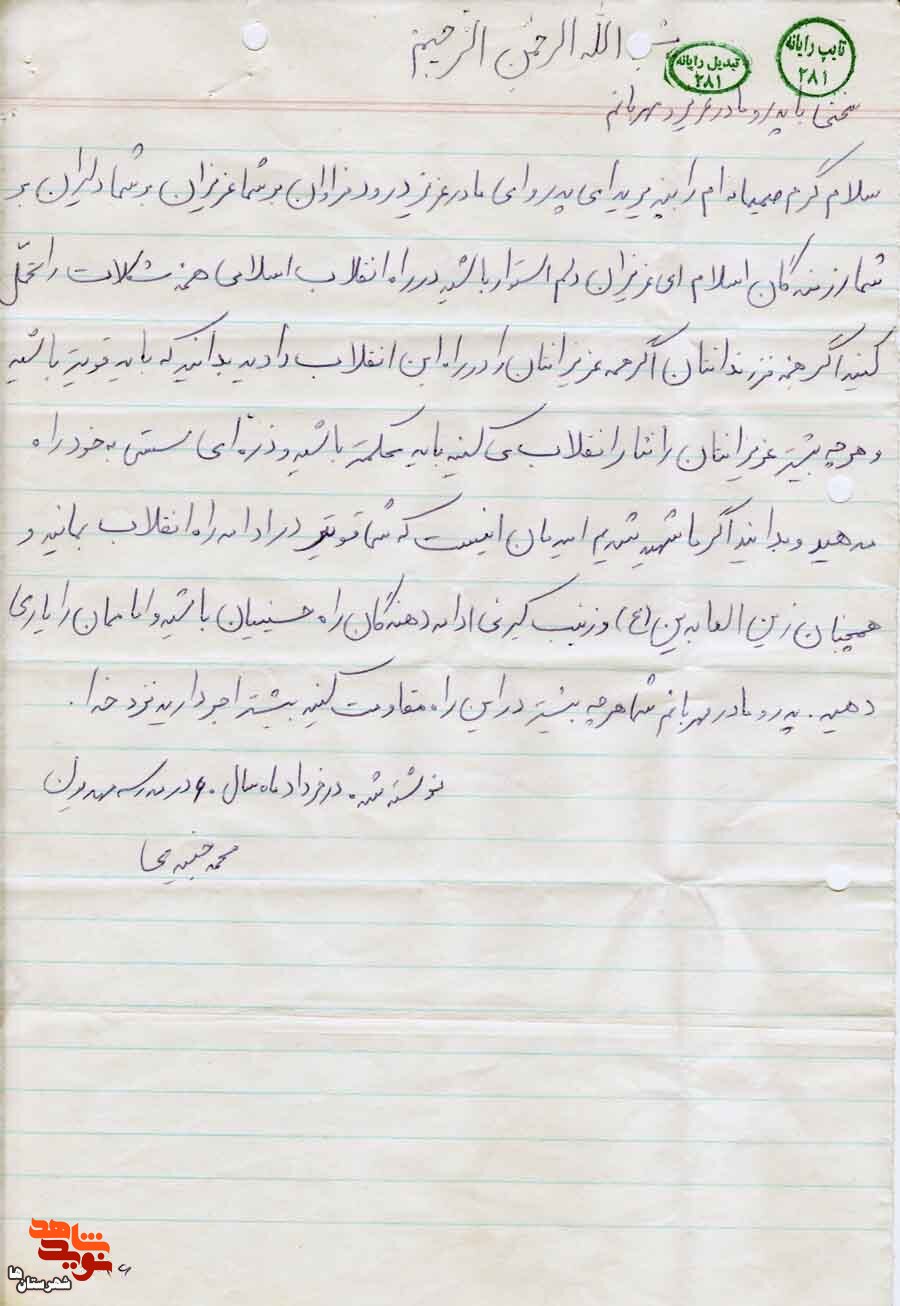 بسم الله الرحمن الرحیم
تایپ رایانه
۲۸۱
تبدیل رایانه
۲۸۱
سخنی با پدر و مادر عزیز و مهربانم
سلام گرم صمیمانه ام را بپذیرید ای پدر و ای مادر عزیز درود فراوان بر شما عزیزان بر شما دلیران بر
شما رزمندگان اسلام ای عزیزان دلم استوار باشید در راه انقلاب اسلامی همه مشکلات را تحمل
کنید اگر همه فرزندانتان اگر همه عزیزانتان را در راه این انقلاب دادید بدانید که باید قویتر باشید
و هرچه بیشتر عزیزانتان را نثار انقلاب می کنید باید محکمتر باشید و ذره ای سستی به خود راه
ندهید و بدانید اگر ما شهید شدیم امیدمان اینست که شما قویتر در ادامه راه انقلاب بمانید و
همچنان زین العابدین (ع) و زینب کبری ادامه دهندگان راه حسینیان باشید و امامان را یاری
دهید. پدر و مادر مهربانم شما هرچه بیشتر در این راه مقاومت کنید بیشتر اجر دارید نزد خدا.
نوشته شده در خرداد ماه سال ۶۰ در مدرسه
محمد
نوید شاهد
شهرستان‌ها